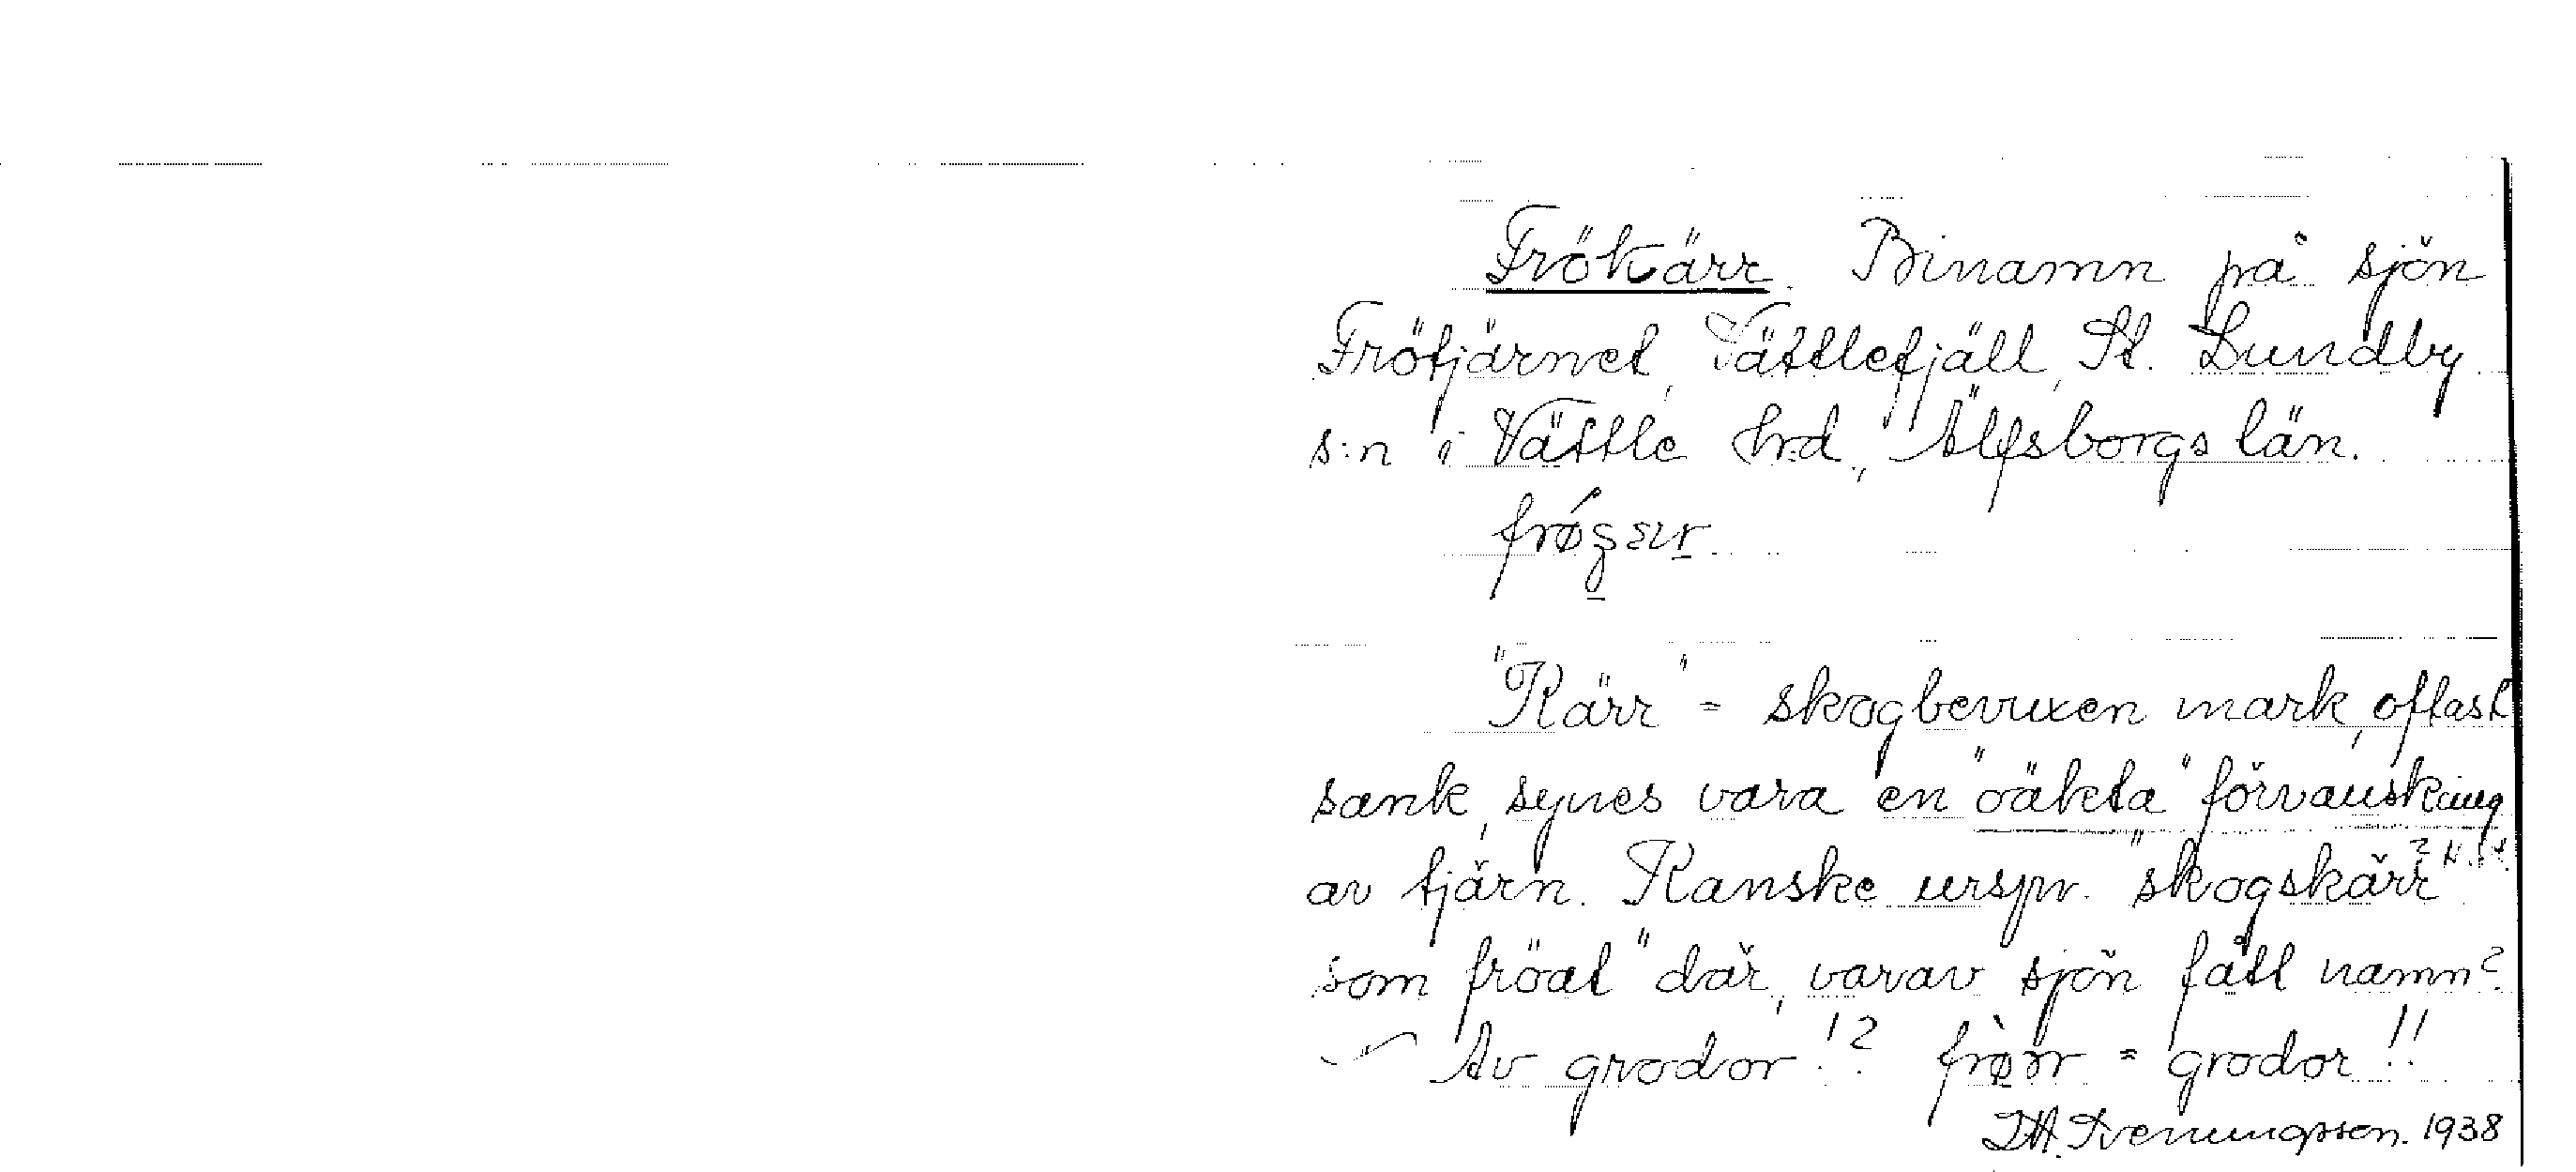 Frökärr. Binamn på sjön
Frötjärnet, Vättlefjäll, St. Lundby
s:n i Vättle hd., Älfsborgs län.
"Kärr" = skogbevuxen mark, oftast
sank, synes vara en "oäkta" förvanskning
av tjärn. Kanske urspr. "skogskärr
som fröat" där, varav sjön fått namn?
Av grodor!? = grodor!!
1938